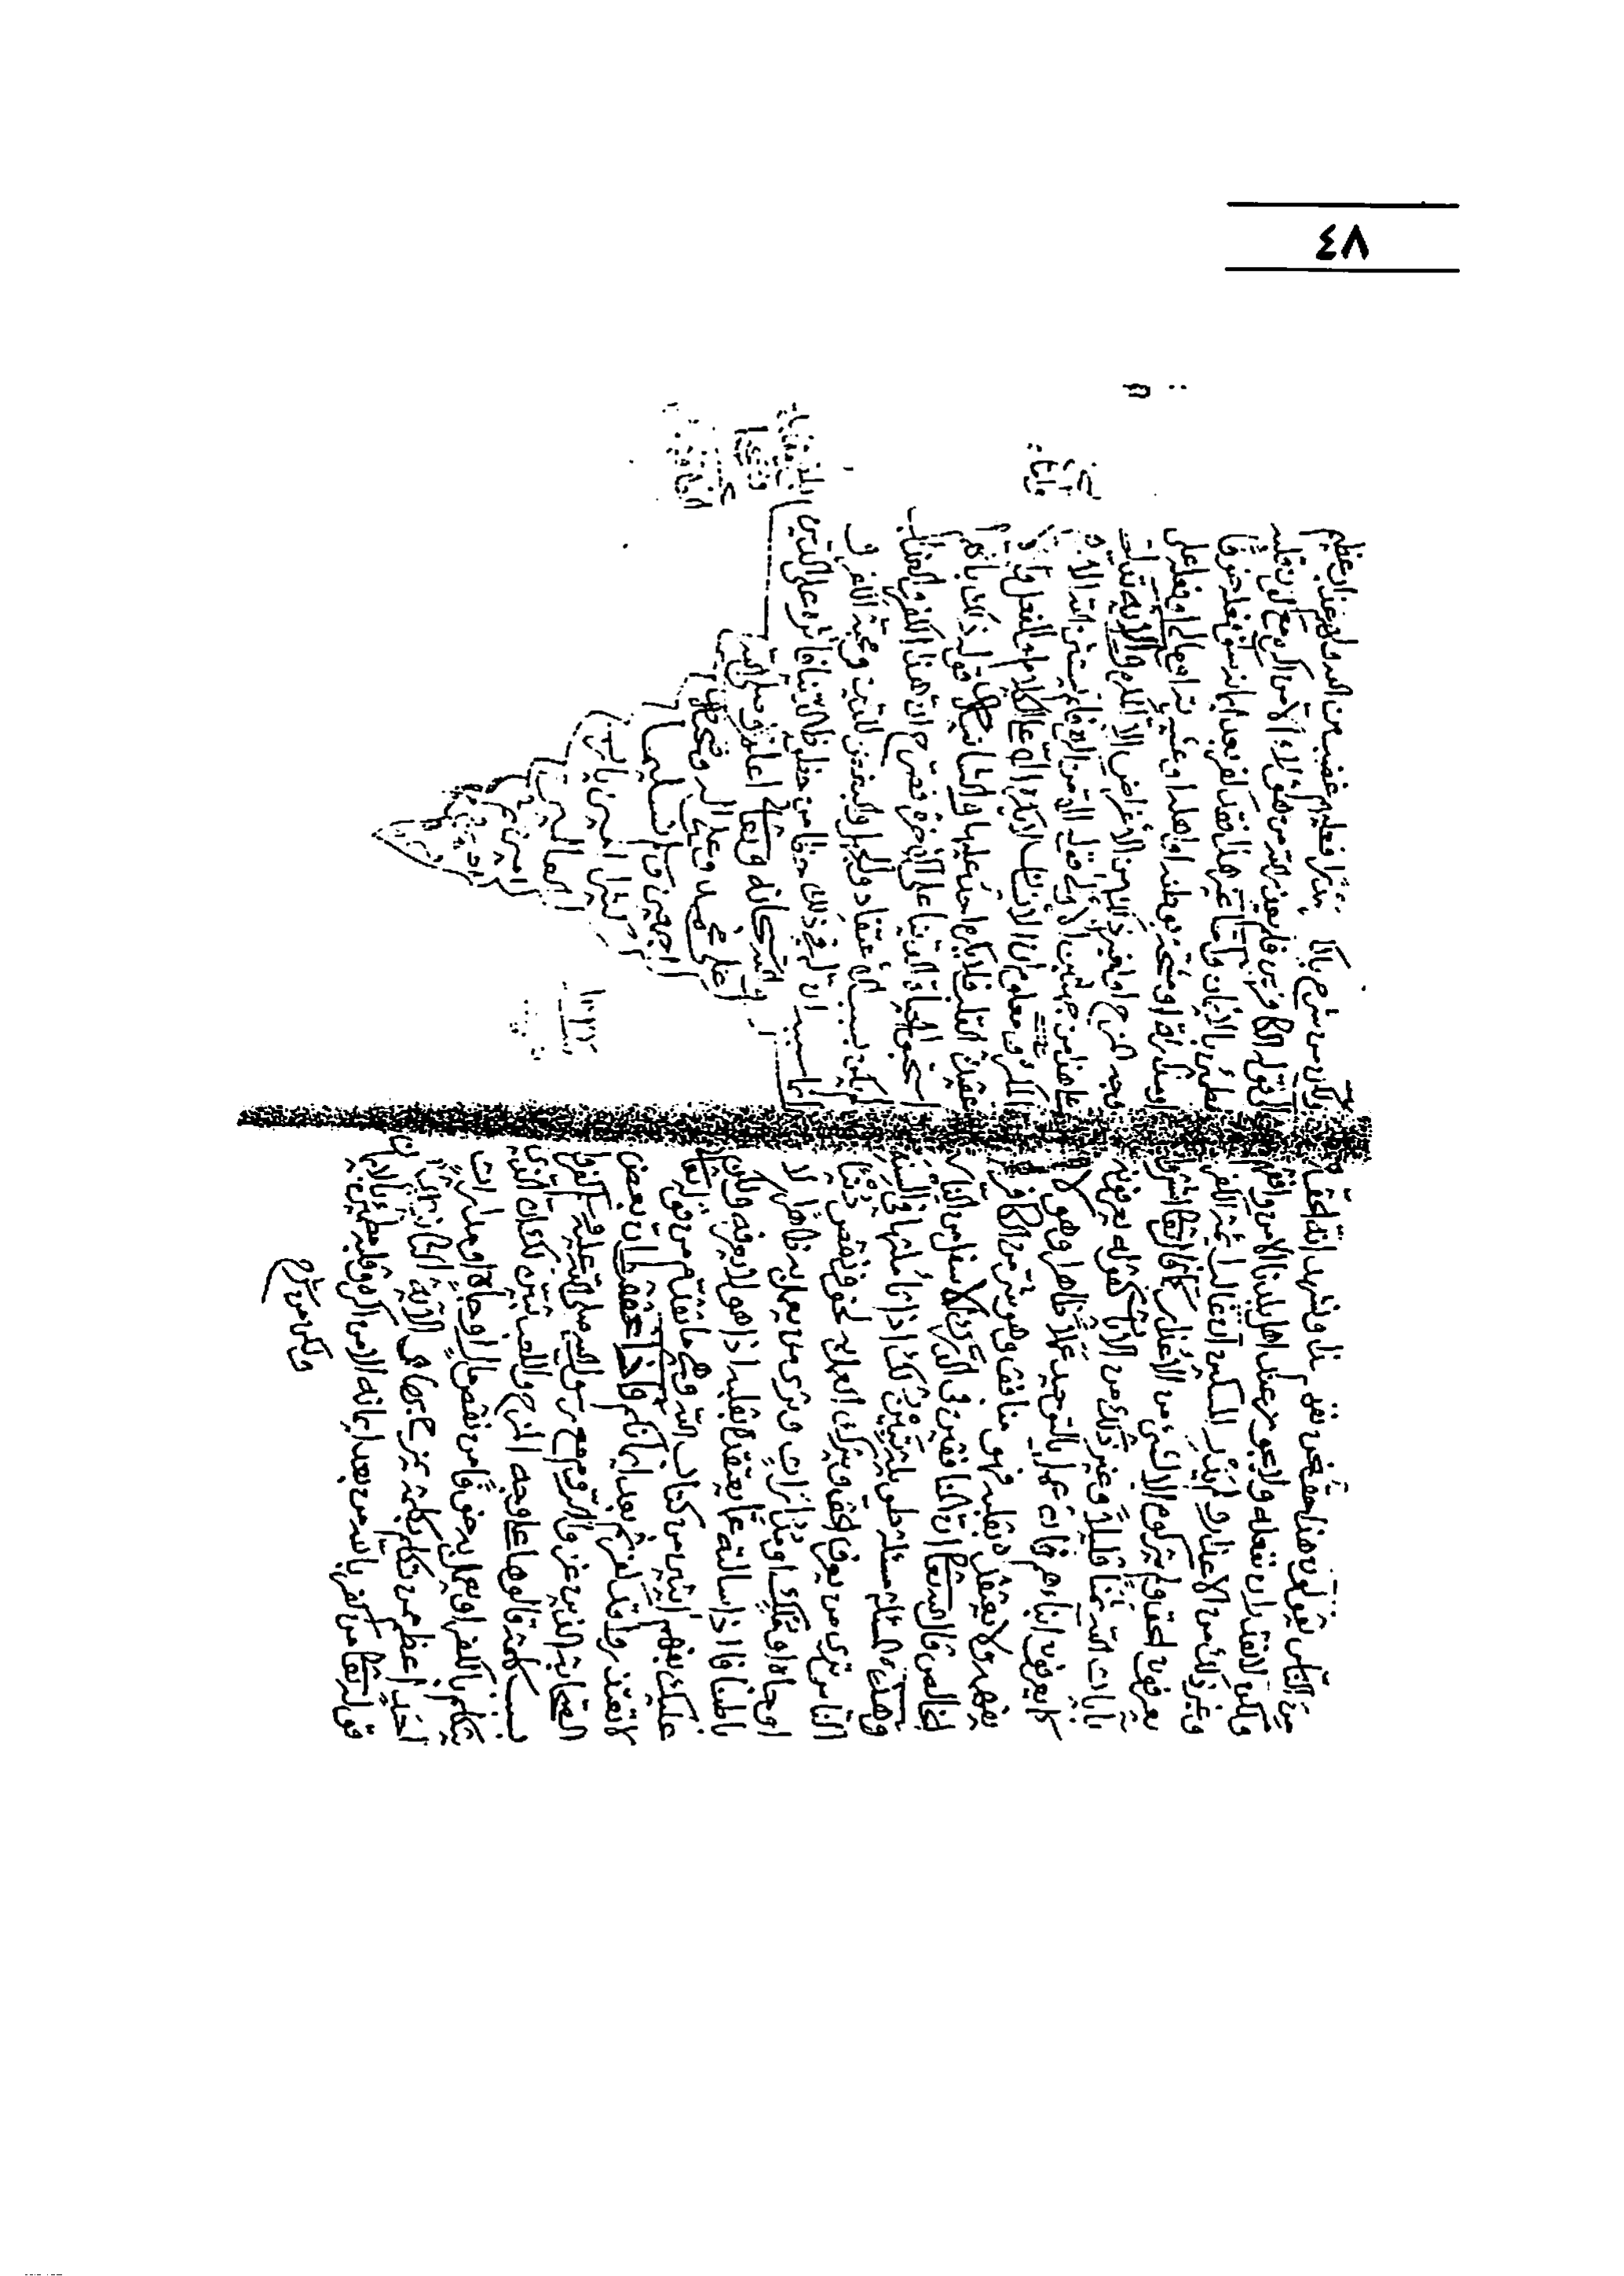 ٤٨
من الناس يقولون هذا حق ونحن نفهم هذا ونشهد انه الحق
ولكن لا نقدر ان نفعله ولا يجوز عند اهل بلدنا الا من وافقهم
وغير ذلك من الاعذار ولم يدر المسكين ان غالب ائمة الكفر
يعرفون الحق ولم يتركوه الا لشيء من الاعذار كما قال تعالى اشتروا
بآيات الله ثمنا قليلا وغير ذلك من الآيات كقوله يعرفونه
كما يعرفون ابناءهم فان عمل بالتوحيد عملا ظاهرا وهو لا
يفهمه ولا يعتقده بقلبه فهو منافق وهو شر من الكافر
الخالص قال الله تعالى ان المنافقين في الدرك الاسفل من النار
وهذه المسئلة مسئلة طويلة تبين لك اذا تأملتها في السنة
الناس ترى من يعرف الحق ويترك العمل به لخوف نقص دنيا
او جاه او ملك او مدارات وترى من يعمل به ظاهرا لا
باطنا فاذا سالته عما يعتقد بقلبه اذا هو لا يعرفه ولكن
عليك بفهم آيتين من كتاب الله اولاهما ما تقدم من قوله تعالى
لا تعتذروا قد كفرتم بعد ايمانكم فاذا تحققت ان بعض
الصحابة الذين غزوا الروم مع رسول الله صلى الله عليه وسلم كفروا
بسبب كلمة قالوها على وجه المزح واللعب تبين لك ان الذي
يتكلم بالكفر او يعمل به خوفا من نقص مال او جاه او مدارات
لاحد اعظم ممن تكلم بكلمة يمزح بها والآية الثانية
قوله تعالى من كفر بالله من بعد ايمانه الا من اكره وقلبه مطمئن بالايمان
ولكن من شرح
ولكن من شرح بالكفر صدرا فعليهم غضب من الله ولهم عذاب عظيم
فلم يعذر الله من هؤلاء الا من اكره مع كون قلبه
مطمئن بالايمان واما غير هذا فقد كفر بعد ايمانه سواء فعله خوفا
او مداراة او مشحة بوطنه او اهله او عشيرته او ماله او فعله على
وجه المزح او لغير ذلك من الاغراض الا المكره والآية تدل
على هذا من جهتين الاولى قوله الا من اكره فلم يستثن الله الا
المكره ومعلوم ان الانسان لا يكره الا على الكلام او الفعل واما
عقيدة القلب فلا يكره احد عليها والثانية قوله ذلك بانهم
استحبوا الحياة الدنيا على الآخرة فصرح ان هذا الكفر والعذاب
لم يكن بسبب الاعتقاد والجهل والبغض للدين ومحبة الكفر
سببه ان له في ذلك حظا من حظوظ الدنيا فآثره على الدين
والله سبحانه وتعالى اعلم وصلى الله
على محمد وعلى اله وصحبه
اجمعين وسلم تسليما